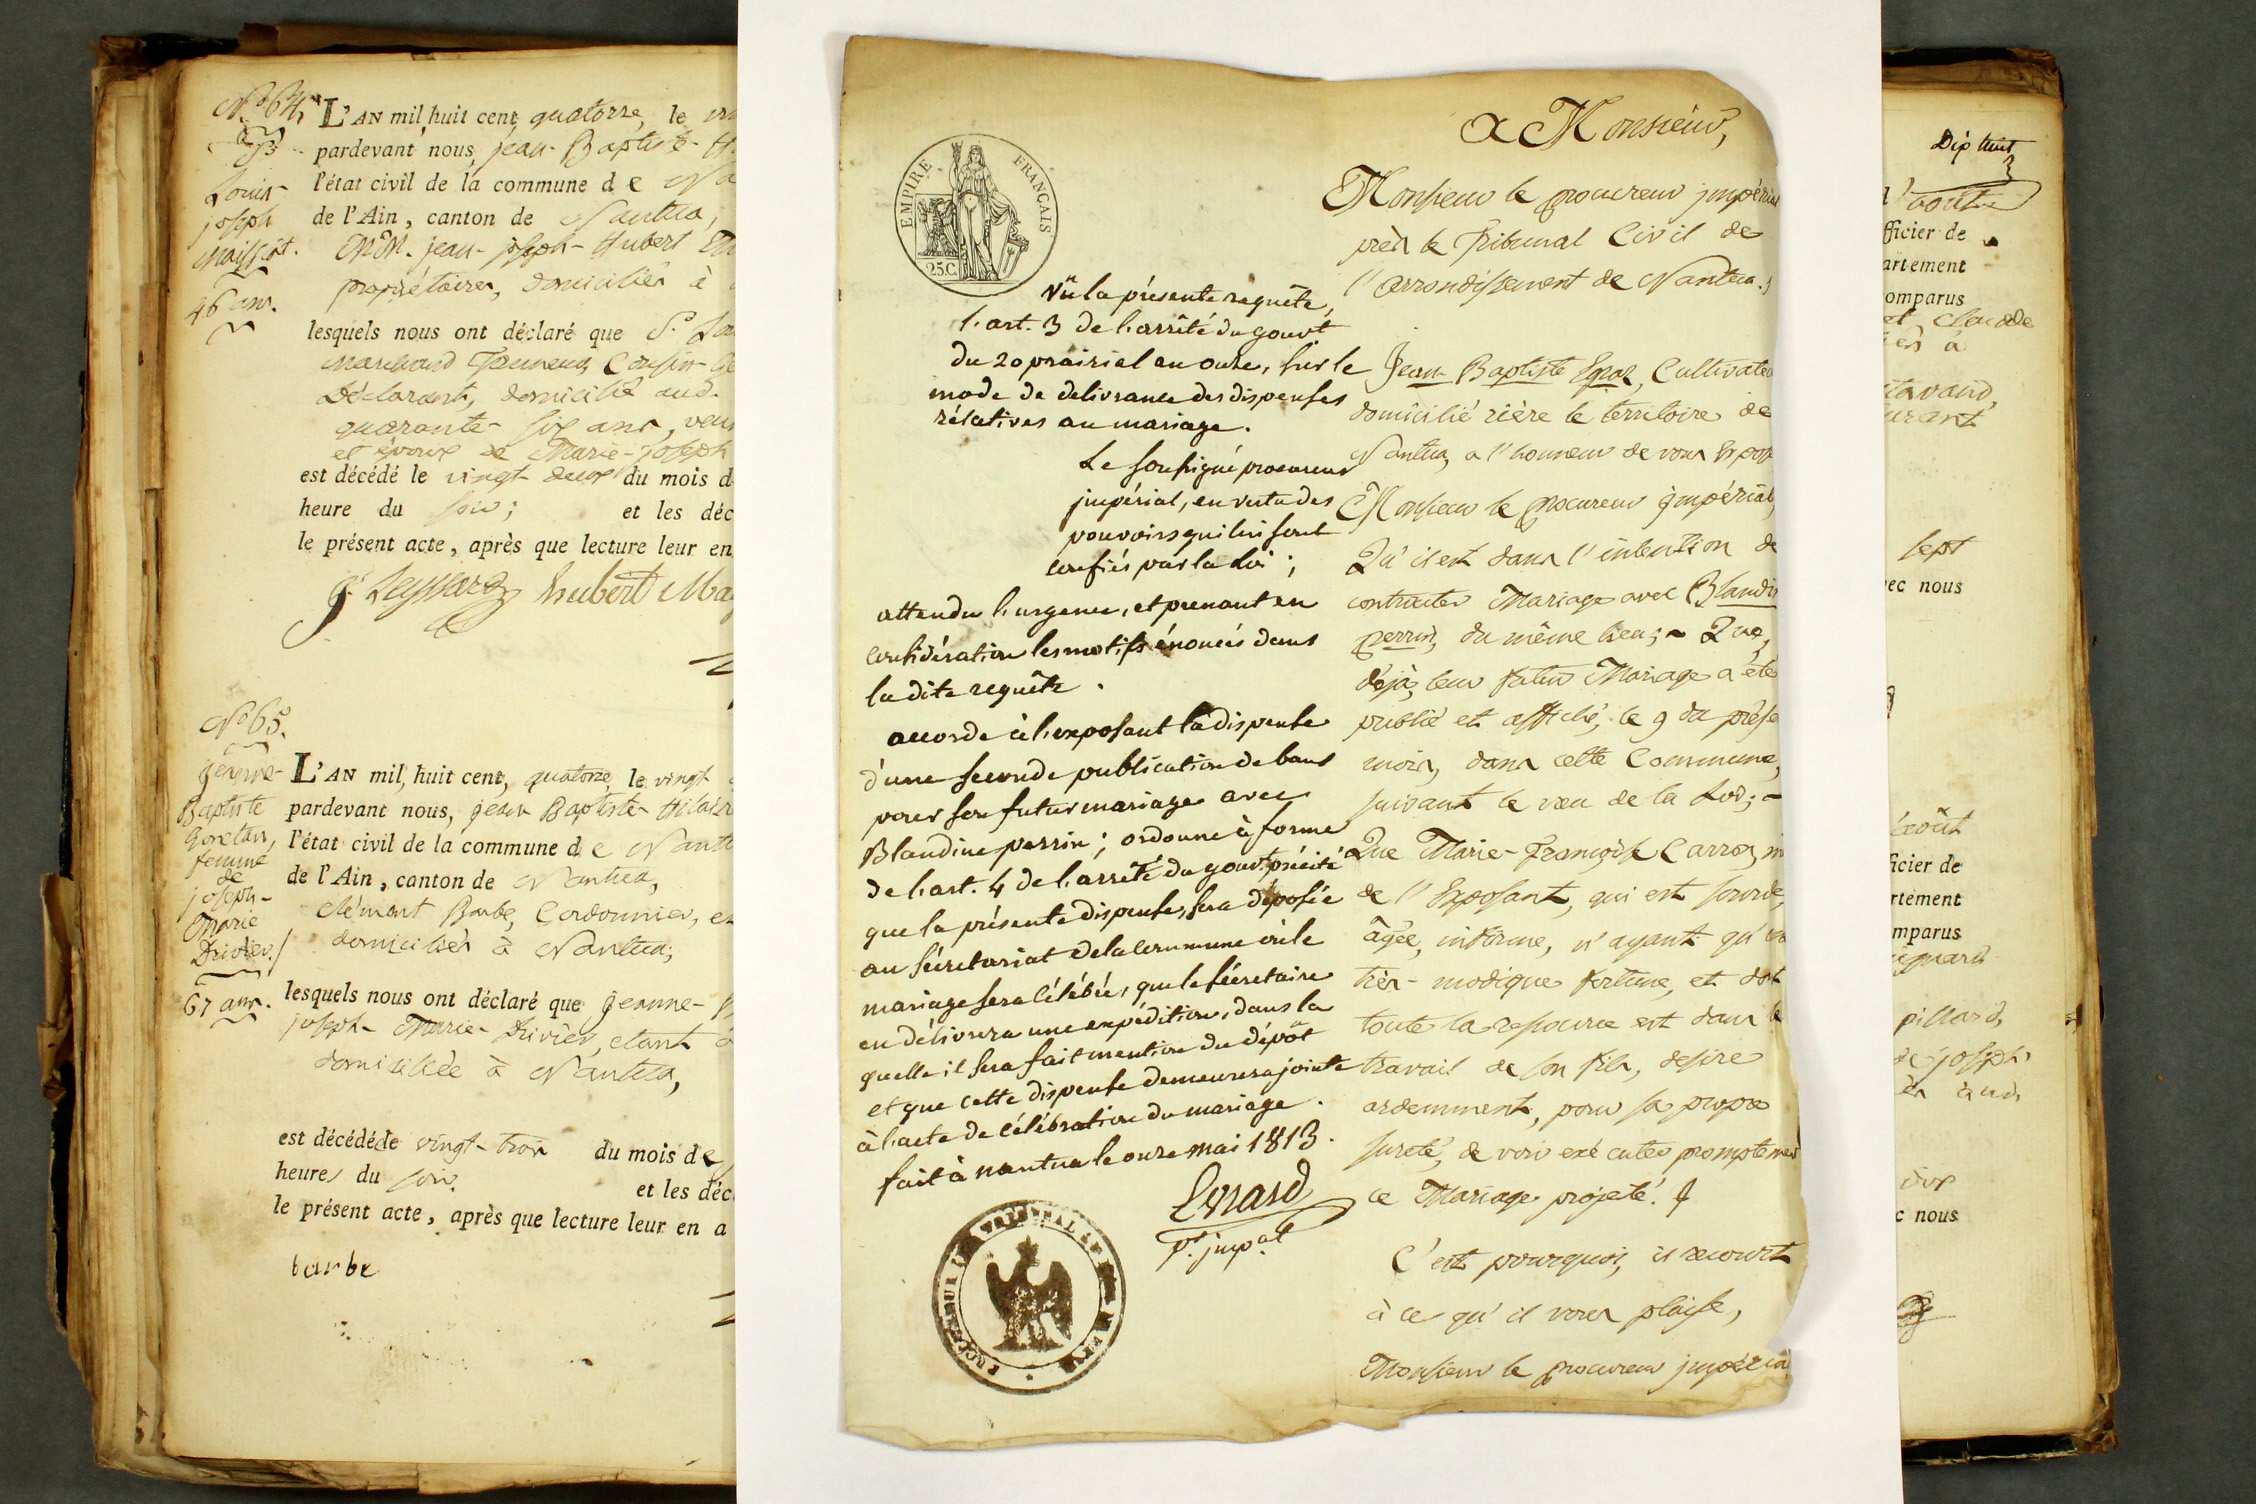 N.° 64,
Louis-
joseph
Maissiat.
46 ans.
L'AN mil, huit cent, quatorze, le
pardevant nous, jean-Baptiste-
l'état civil de la commune de Na
de l'Ain, canton de Nantua,
MM. jean-joseph-hubert
propriétaires, domiciliés à
lesquels nous ont déclaré que S.r Lou
marchand Tanneur, Cousin-
Déclarant, domicilié aud.
quarante-six ans, veu
et époux de Marie-joseph
est décédé le vingt-deux du mois d
heure du soir; et les déc
le présent acte, après que lecture leur en
hubert Ma
N.° 65.
jeanne-
Baptiste
Goretan,
femme
de
joseph-
Marie
Drivier./
67 ans.
L'AN mil, huit cent, quatorze, le vingt
pardevant nous, jean Baptiste-hilair
l'état civil de la commune de Nant
de l'Ain, canton de Nantua,
clément Barbe, Cordonnier, et
domiciliés à Nantua;
lesquels nous ont déclaré que jeanne-
joseph-Marie-Drivier, étant
domiciliée à Nantua,
est décédée le vingt-trois du mois de
heures du soir. et les déc
le présent acte, après que lecture leur en a
barbe
EMPIRE FRANÇAIS
25 C.
Vu la présente requête,
l'art. 3 de l'arrêté du gouvt.
du 20 prairial an onze, sur le
mode de delivrance des dispenses
rélatives au mariage.
Le soussigné procureur
impérial, en vertu des
pouvoirs qui lui sont
confiés par la loi;
attendu l'urgence, et prenant en
considération les motifs énoncés dans
la dite requête.
accorde à l'exposant la dispense
d'une seconde publication de bans
pour son futur mariage avec
Blandine perrin; ordonne à forme
de l'art. 4 de l'arrêté du gouvt. précité
que la présente dispense, sera déposée
au sécretariat de la commune où le
mariage sera célébré, que le sécretaire
en délivrera une expédition, dans la
quelle il sera fait mention du dépôt
et que cette dispense demeurera jointe
à l'acte de célébration du mariage.
fait à nantua le onze mai 1813.
pr. imp.al
A Monsieur,
Monsieur le procureur jmpérial
près le Tribunal Civil de
l'arrondissement de Nantua.
Jean-Baptiste Egraz, Cultivateu
domicilié rière le territoire de
Nantua, a l'honneur de vous expos
Monsieur le procureur jmpérial,
Qu'il est dans l'intention de
contracter Mariage avec Blandin
perrin, du même lieu; - Que,
déjà, leur futur Mariage a été
publié et affiché, le 9 du prése
mois, dans cette Commune,
suivant le vœu de la Loi; -
Que Marie-Françoise Carron, m
de l'Exposant, qui est sourde,
âgée, infirme, n'ayant qu'un
très-modique fortune, et dont
toute la ressource est dans le
travail de son fils, desire
ardemment, pour sa propre
sureté, de voir exécuter promptement
ce Mariage projeté.
C'est pourquoi, il recourt
à ce qu'il vous plaise,
Monsieur le procureur jmpérial
Dip
fficier de
artement
omparus
et claude
à
sept
ec nous
août
ficier de
rtement
mparus
pillard,
de joseph
c nous